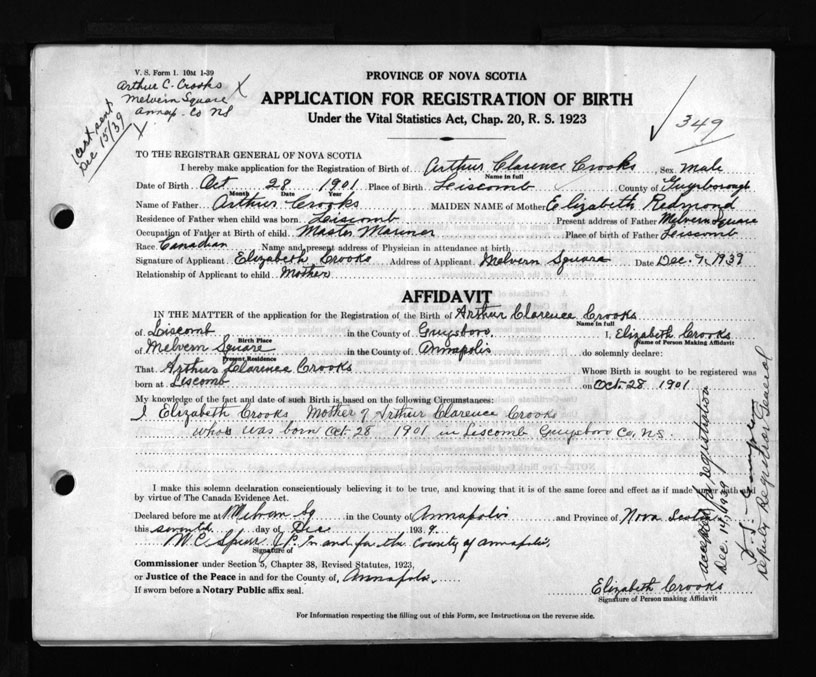 V. S. Form 1. 10M 1-39
Arthur C. Crooks
Melvern Square
Annap. Co NS
1 cert sent
Dec 15/39
PROVINCE OF NOVA SCOTIA
APPLICATION FOR REGISTRATION OF BIRTH
Under the Vital Statistics Act, Chap. 20, R. S. 1923
349
TO THE REGISTRAR GENERAL OF NOVA SCOTIA
I hereby make application for the Registration of Birth of Arthur Clarence Crooks Sex Male
Name in full
Date of Birth Oct 28 1901 Place of Birth Liscomb County of Guysborough
Month Date Year
Name of Father Arthur Crooks MAIDEN NAME of Mother Elizabeth Redmond
Residence of Father when child was born Liscomb Present address of Father Melvern Square
Occupation of Father at Birth of child Master Mariner Place of birth of Father Liscomb
Race Canadian Name and present address of Physician in attendance at birth
Signature of Applicant Elizabeth Crooks Address of Applicant Melvern Square Date Dec. 7, 1939
Relationship of Applicant to child Mother
AFFIDAVIT
IN THE MATTER of the application for the Registration of the Birth of Arthur Clarence Crooks
Name in full
of Liscomb in the County of Guysboro. I, Elizabeth Crooks
Birth Place Name of Person Making Affidavit
of Melvern Square in the County of Annapolis do solemnly declare:
Present Residence
That Arthur Clarence Crooks Whose Birth is sought to be registered was
born at Liscomb on Oct. 28 1901
My knowledge of the fact and date of such Birth is based on the following Circumstances:
I Elizabeth Crooks Mother of Arthur Clarence Crooks
who was born Oct. 28 1901 in Liscomb Guysboro Co, N.S.
I make this solemn declaration conscientiously believing it to be true, and knowing that it is of the same force and effect as if made under oath and
by virtue of The Canada Evidence Act.
Declared before me at Melvern Sq in the County of Annapolis and Province of Nova Scotia
this seventh day of Dec 1939.
W. C. Spurr J.P. In and for the County of Annapolis,
Signature of
Commissioner under Section 5, Chapter 38, Revised Statutes, 1923,
or Justice of the Peace in and for the County of, Annapolis.
If sworn before a Notary Public affix seal.
Elizabeth Crooks
Signature of Person making Affidavit
For Information respecting the filling out of this Form, see Instructions on the reverse side.
accepted for registration
Dec 14, 1939
Deputy Registrar General